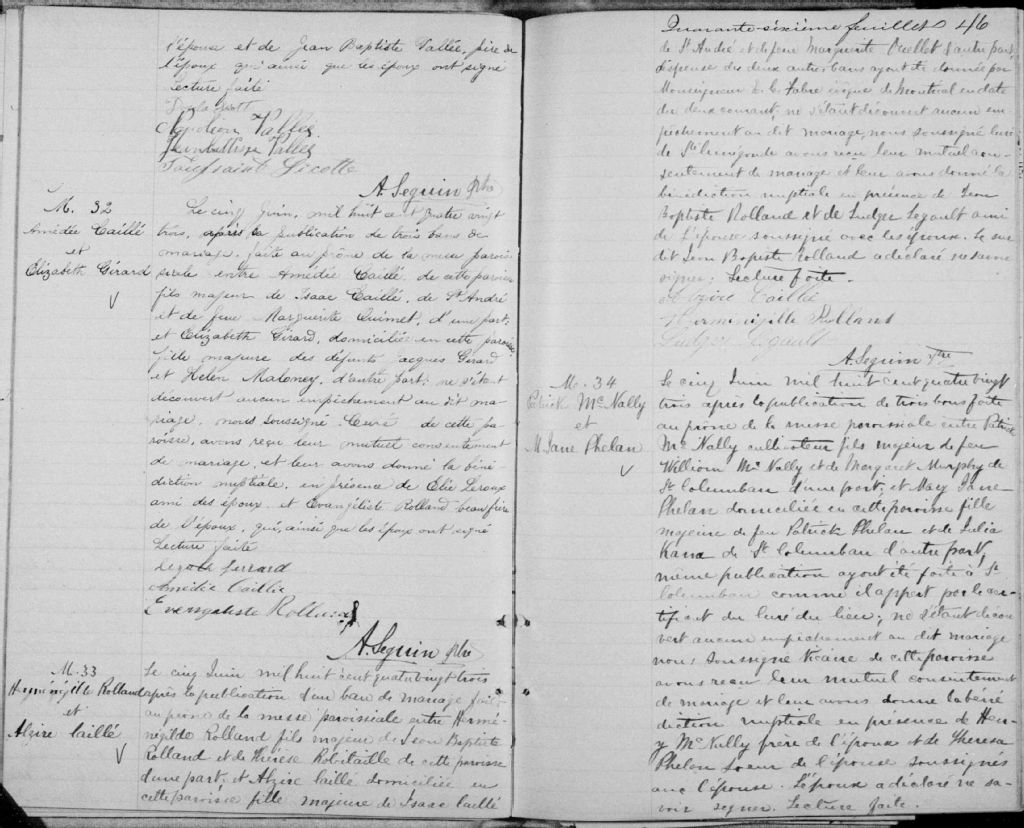 l'épouse et de Jean Baptiste Vallée, père de
l'époux qui ainsi que les époux ont signé
Lecture faite
Napoléon Vallée
Jean Bttise Vallée
Toussaint Sicotte
A. Seguin Ptre
M. 32
Amédée Caillé
et
Elizabeth Girard
Le cinq Juin, mil huit cent quatre vingt
trois, après la publication de trois bans de
mariage, faite au prône de la messe parois-
siale entre Amédée Caillé, de cette paroisse
fils majeur de Isaac Caillé, de St André
et de feue Marguerite Ouimet, d'une part;
et Elizabeth Girard, domiciliée en cette paroisse,
fille majeure des défunts Jacques Girard
et Helen Maloney, d'autre part; ne s'étant
découvert aucun empêchement au dit ma-
riage, nous soussigné Curé de cette pa-
roisse, avons reçu leur mutuel consentement
de mariage, et leur avons donné la béné-
diction nuptiale, en présence de Elie Leroux
ami des époux, et Evangéliste Rolland beau frère
de l'époux, qui, ainsi que les époux ont signé
Lecture faite
Amédée Caillée
Evengeliste Rolland
A. Seguin Ptre
M. 33
Herménégilde Rolland
et
Alzire Caillé
Le cinq Juin mil huit cent quatre vingt trois
après la publication d'un ban de mariage faite
au prone de la messe paroissiale entre Hermé-
négilde Rolland fils majeur de Jean Baptiste
Rolland et de Thérèse Robitaille de cette paroisse
d'une part, et Alzire Caillé domiciliée en
cette paroisse fille majeure de Isaac Caillé
Quarante-sixième feuillet 46
de St André et de feue Marguerite Ouellet d'autre part,
dispense des deux autres bans ayant été donnée par
Monseigneur E. C. Fabre évêque de Montréal en date
du deux courant; ne s'étant découvert aucun em-
pêchement au dit mariage, nous soussigné Curé
de St Cunégonde avons reçu leur mutuel con-
sentement de mariage et leur avons donné la
bénédiction nuptiale en présence de Jean
Baptiste Rolland et de Ludger Legault ami
de l'époux soussigné avec les époux. Le sus
dit Jean Bapiste Rolland a déclaré ne savoir
signer; Lecture faite.
Alzire Caillé
Herminigille Rolland
Ludger Legault
A. Seguin Ptre
M. 34
Patrick Mc Nally
et
M. Jane Phelan
Le cinq Juin mil huit cent quatre vingt
trois après la publication de trois bans faite
au prône de la messe paroissiale entre Patrick
Mc Nally cultivateur fils majeur de feu
William Mc Nally et de Margaret Murphy de
St Columban d'une part; et Mary Jane
Phelan domiciliée en cette paroisse fille
majeure de feu Patrick Phelan et de Julia
Kana de St Columban d'autre part;
même publication ayant été faite à St
Columban comme il appert par le cer-
tificat du Curé du lieu; ne s'étant décou
vert aucun empêchement au dit mariage
nous soussigné Vicaire de cette paroisse
avons reçu leur mutuel consentement
de mariage et leur avons donné la béné
diction nuptiale en présence de Hen-
y Mc Nally frère de l'époux et de Theresa
Phelan soeur de l'épouse soussignés
avec l'épouse. L'époux a déclaré ne sa-
voir signer. Lecture faite.